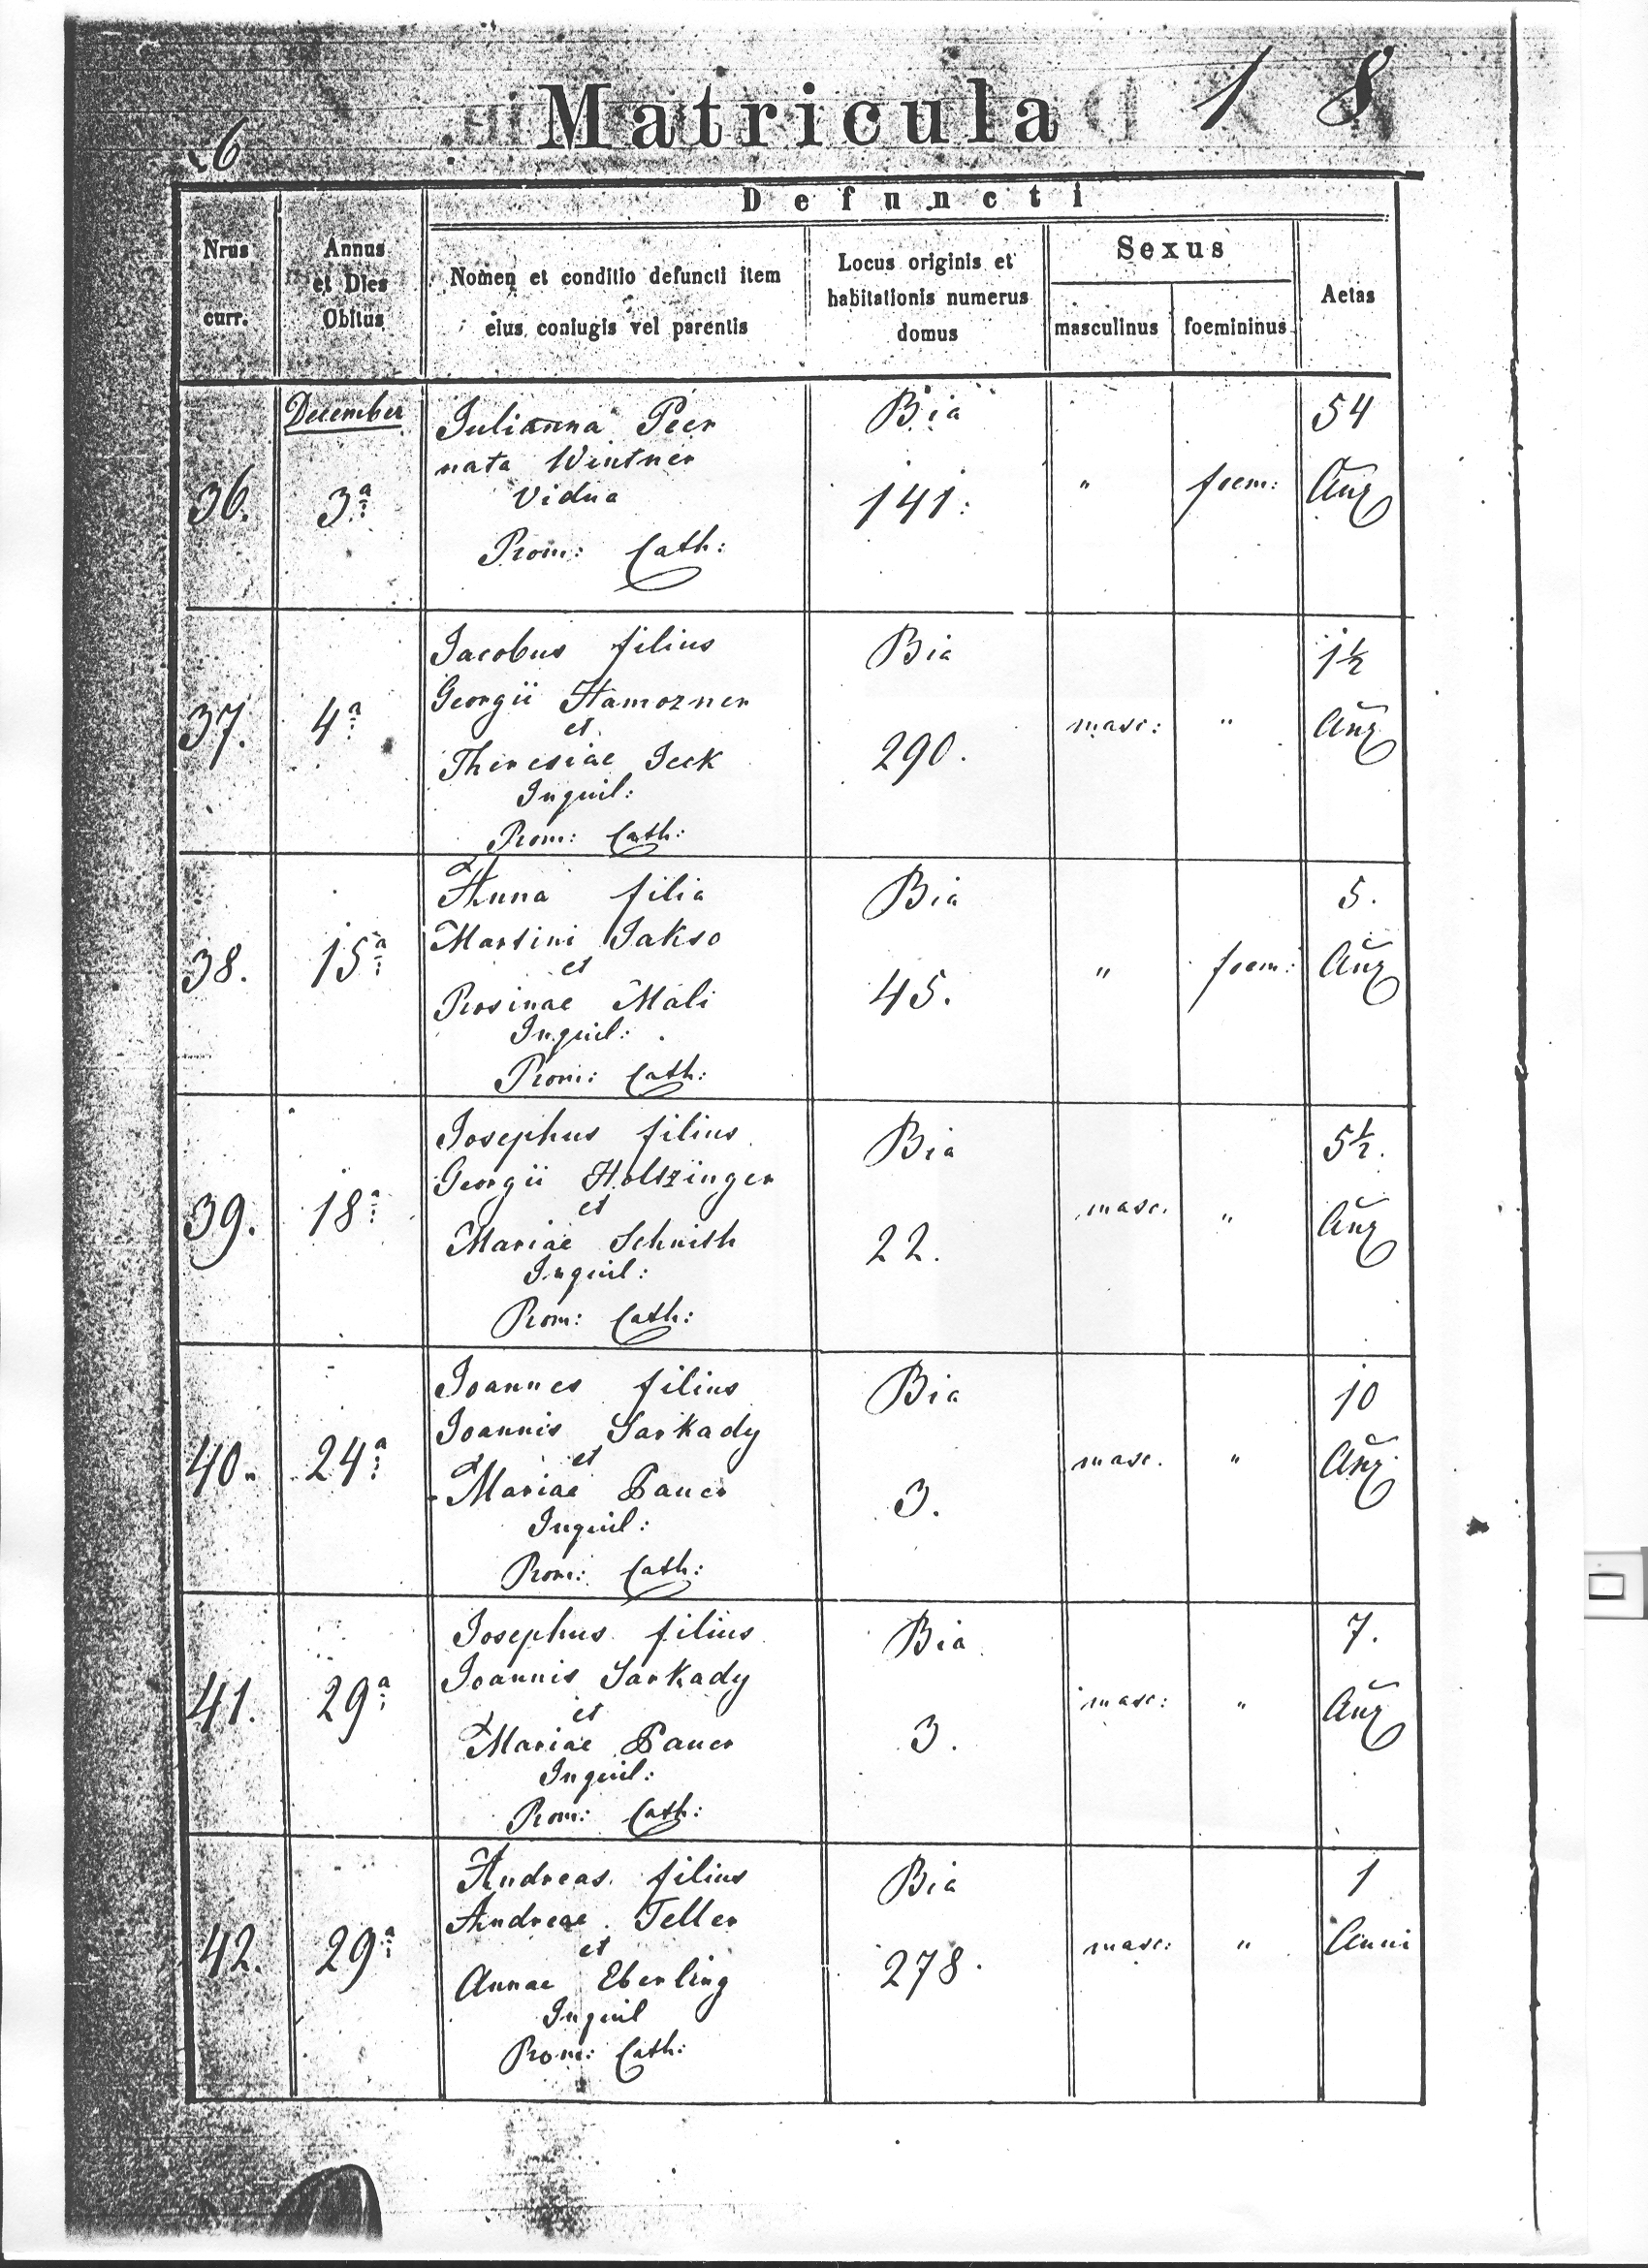 6
Matricula
1 8
Defuncti
Nrus curr.
Annus et Dies Obitus
Nomen et conditio defuncti item eius coniugis vel parentis
Locus originis et habitationis numerus domus
Sexus
masculinus
foemininus
Aetas
December
36.
3a
Iulianna Peer
nata Wintner
Vidua
Rom: Cath:
Bia
141.
"
foem:
54
Ann
37.
4a
Iacobus filius
Georgii Hamozner
et
Theresiae Ieck
Inquil:
Rom: Cath:
Bia
290.
masc:
"
1½
Ann
38.
15a
Anna filia
Martini Jakso
et
Rosinae Mali
Inquil:
Rom: Cath:
Bia
45.
"
foem:
5.
Ann
39.
18a
Iosephus filius
Georgii Holtzinger
et
Mariae Schmith
Inquil:
Rom: Cath:
Bia
22.
masc.
"
5½.
Ann
40.
24a
Ioannes filius
Ioannis Sarkady
et
Mariae Bauer
Inquil:
Rom: Cath:
Bia
3.
masc.
"
10
Ann
41.
29a
Iosephus filius
Ioannis Sarkady
et
Mariae Bauer
Inquil:
Rom: Cath:
Bia
3.
masc:
"
7.
Ann
42.
29a
Andreas filius
Andreae Teller
et
Annae Eberling
Inquil
Rom: Cath:
Bia
278.
masc:
"
1
Anni